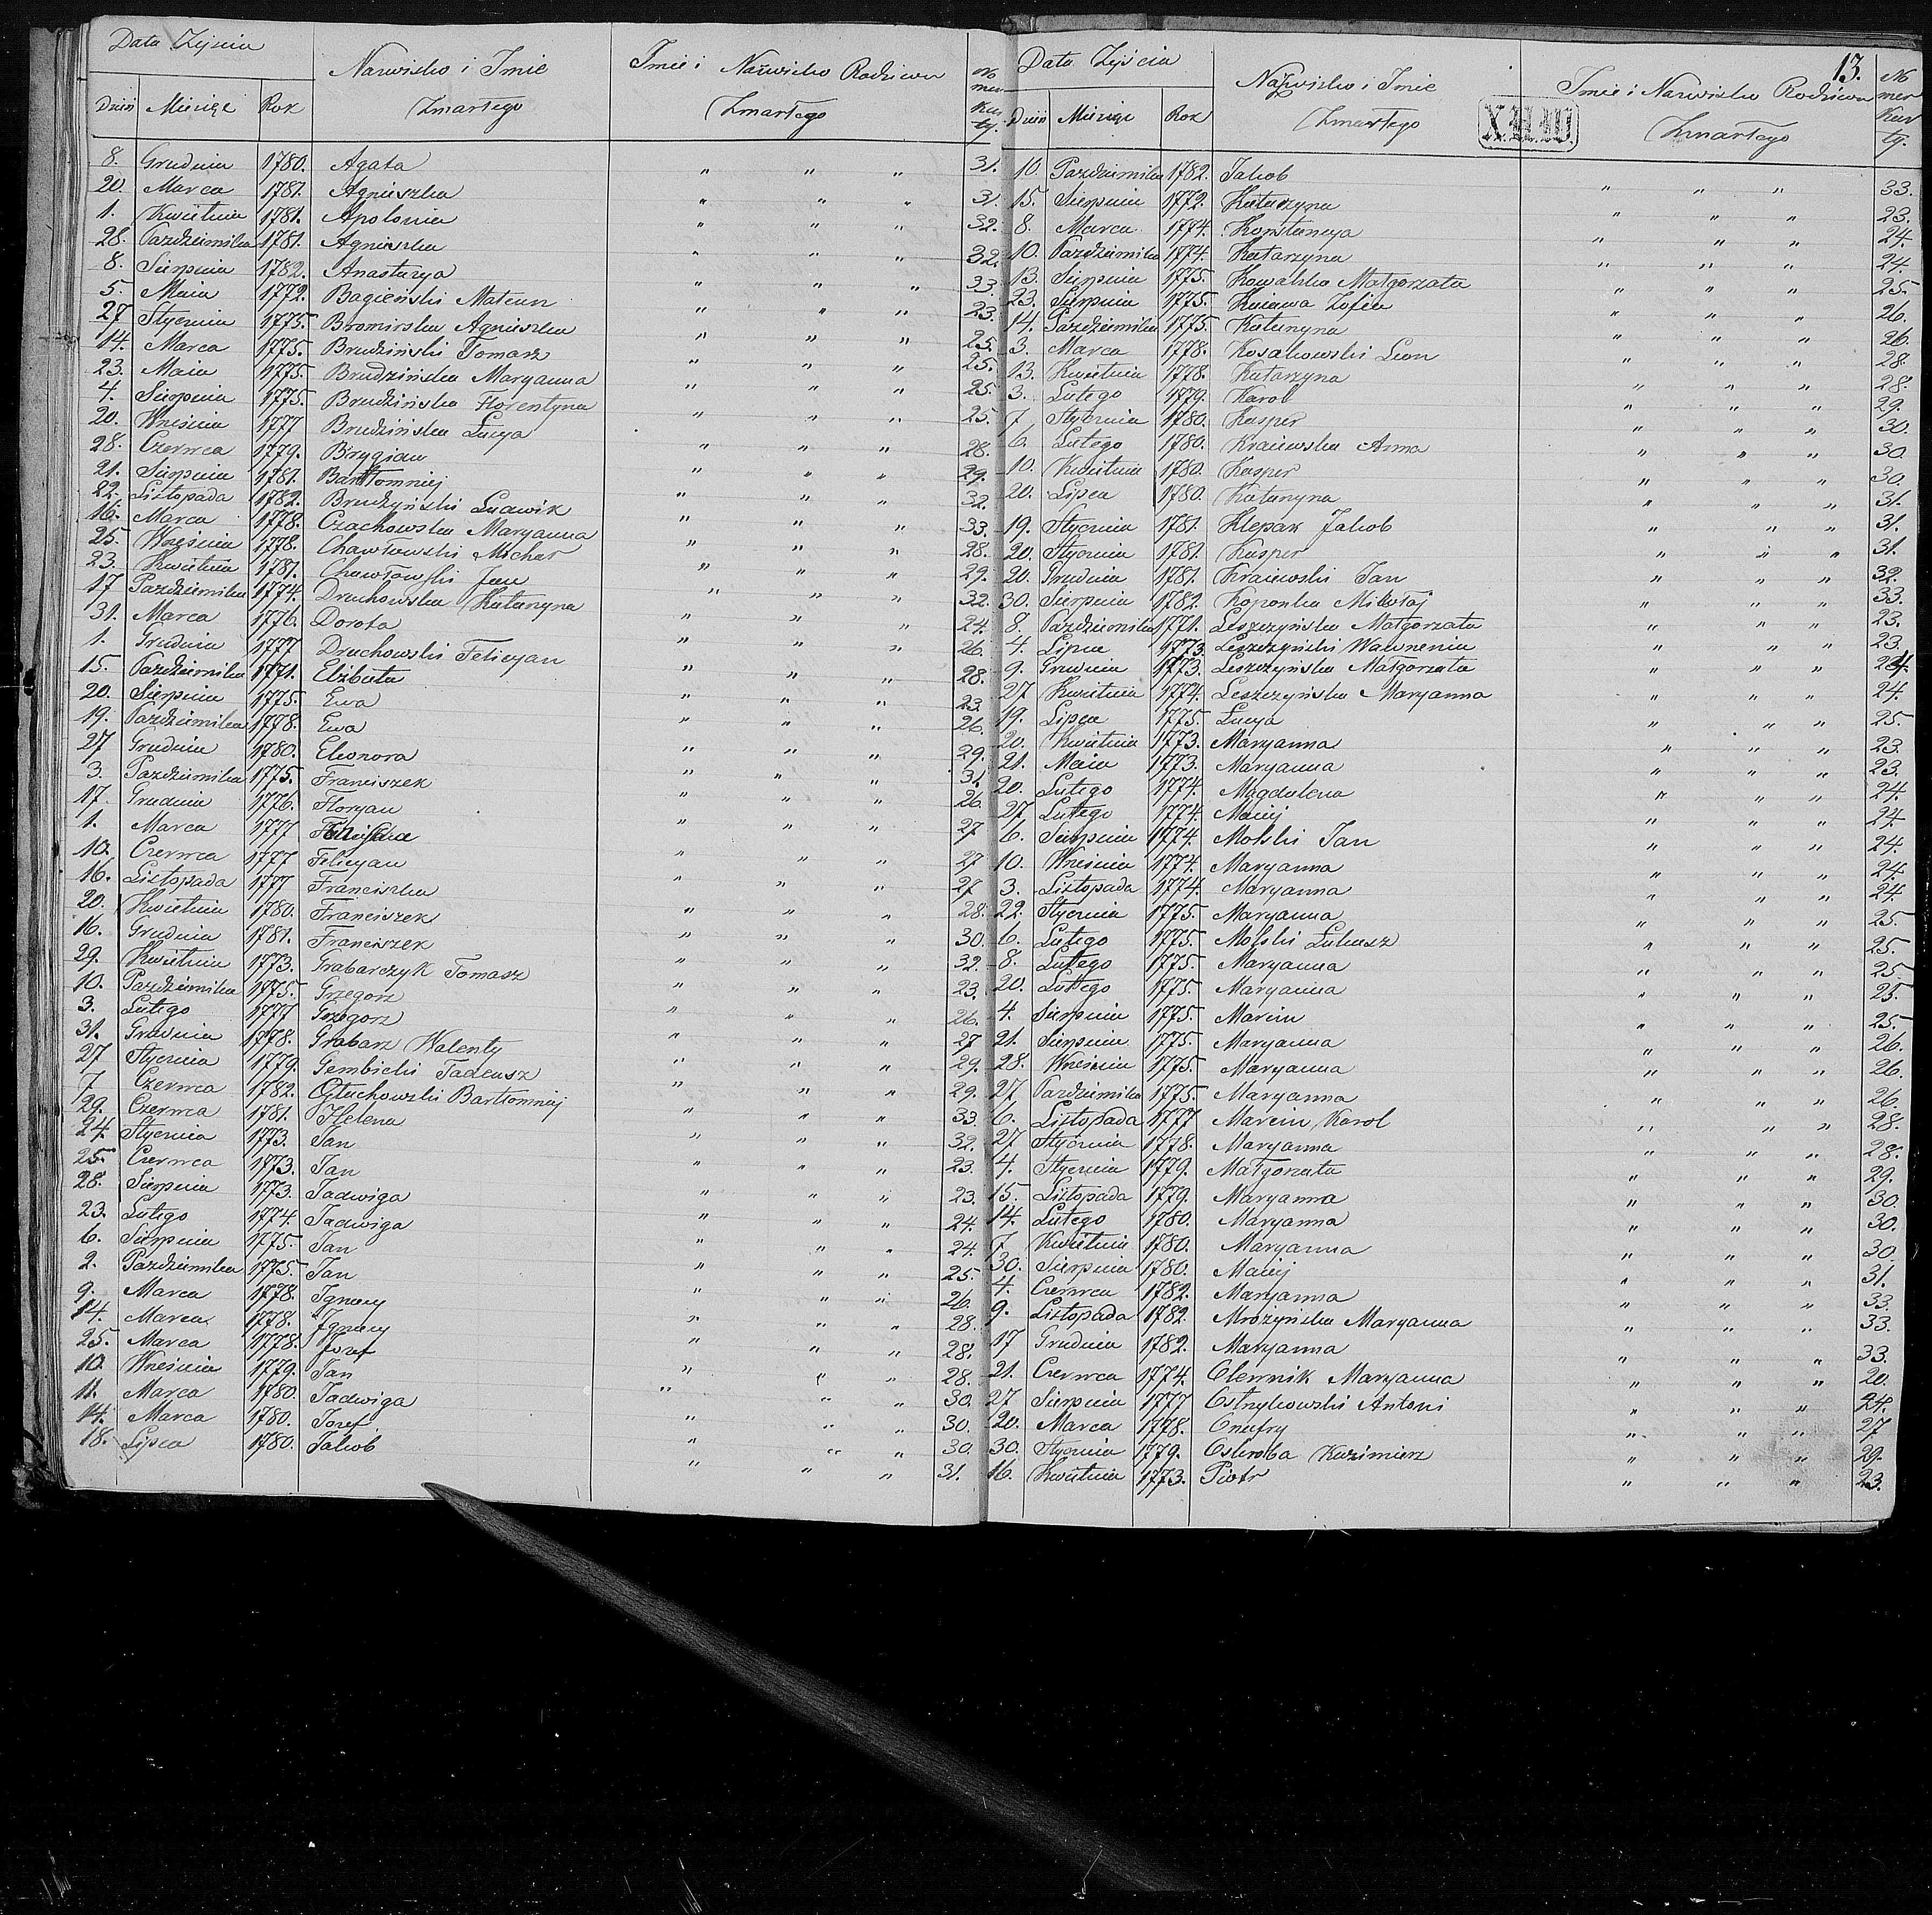 Data Zejścia
Nazwisko i Imie
Zmarłego
Imie i Nazwisko Rodziców
Zmarłego
No mer Kar ty.
Dzień Miesiąc Rok
8. Grudnia 1780. Agata " " " 31.
20. Marca 1781. Agnieszka " " " 31.
1. Kwietnia 1781. Apolonia " " " 32.
28. Października 1781. Agnieszka " " " 32.
8. Sierpnia 1782. Anastazya " " " 33.
5. Maia 1772. Bagieński Mateusz " " " 23.
27 Stycznia 1775. Bromirska Agnieszka " " " 25.
14. Marca 1775. Brudziński Tomasz " " " 25.
23. Maia 1775. Brudzińska Maryanna " " " 25.
4. Sierpnia 1775. Brudzińska Florentyna " " " 25.
20. Września 1777 Brudzińska Łucya " " " 28.
28. Czerwca 1779. Brygian " " " 29.
21. Sierpnia 1781. Bartłomniej " " " 32.
22. Listopada 1782. Brudzyński Ludwik " " " 33.
16. Marca 1778. Czachowska Maryanna " " " 28.
25. Września 1778. Chawłowski Michał " " " 29.
23. Kwietnia 1781. Chawłowski Jan " " " 32.
17 Października 1774. Druchowska Katarzyna " " " 24.
31. Marca 1776. Dorota " " " 26.
1. Grudnia 1777 Druchowski Felicyan " " " 28.
15. Października 1771. Elżbieta " " " 23.
20. Sierpnia 1775. Ewa " " " 26.
19. Października 1778. Ewa " " " 29.
27 Grudnia 1780. Eleonora " " " 31.
3. Października 1775. Franciszek " " " 26
17. Grudnia 1776. Floryan " " " 27
1. Marca 1777 " " " 27
10. Czerwca 1777 Felicyan " " " 27
16. Listopada 1777 Franciszka " " " 28.
20. Kwietnia 1780. Franciszek " " " 30.
16. Grudnia 1781. Franciszek " " " 32.
29. Kwietnia 1773. Grabarczyk Tomasz " " " 23.
10. Października 1775. Grzegorz " " " 26.
3. Lutego 1777 Grzegorz " " " 27
31. Grudnia 1778. Grabarz Walenty " " " 29.
27 Stycznia 1779. Gembicki Tadeusz " " " 29.
7 Czerwca 1782. Głuchowski Bartłomniej " " " 33.
29. Czerwca 1781. Helena " " " 32.
24. Stycznia 1773. Jan " " " 23.
25. Czerwca 1773. Jan " " " 23.
28. Sierpnia 1773. Jadwiga " " " 24.
23. Lutego 1774. Jadwiga " " " 24.
6. Sierpnia 1775. Jan " " " 25.
2. Października 1775. Jan " " " 26.
9. Marca 1778. Ignacy " " " 28.
14. Marca 1778. Ignacy " " " 28.
25. Marca 1778. Jozef " " " 28.
10. Września 1779. Jan " " " 30.
11. Marca 1780. Jadwiga " " " 30.
14. Marca 1780. Jozef " " " 30.
18. Lipca 1780. Jakób " " " 31.
13.
Data Zejścia
Nazwisko i Imie
Zmarłego
Imie i Nazwisko Rodziców
Zmarłego
No mer Kar ty.
Dzień Miesiąc Rok
10. Października 1782. Jakob " " " 33.
15. Sierpnia 1772. Katarzyna " " " 23.
8. Marca 1774. Konstancya " " " 24.
10. Października 1774. Katarzyna " " " 24.
13. Sierpnia 1775. Kowalska Małgorzata " " " 25.
23. Sierpnia 1775. Kuiawa Zofia " " " 26.
14. Października 1775. Katarzyna " " " 26.
3. Marca 1778. Kosakowski Leon " " " 28.
13. Kwietnia 1778. Katarzyna " " " 28.
3. Lutego 1779. Karol " " " 29.
7 Stycznia 1780. Kasper " " " 30.
6. Lutego 1780. Kraiewska Anna " " " 30.
10. Kwietnia 1780. Kasper " " " 30.
20. Lipca 1780. Katarzyna " " " 31.
19. Stycznia 1781. Klepak Jakob " " " 31.
20. Stycznia 1781. Kasper " " " 31.
20. Grudnia 1781. Kraiewski Jan " " " 32.
30. Sierpnia 1782. Koponka Mikołaj " " " 33.
8. Października 1771. Leszczyńska Małgorzata " " " 23.
4. Lipca 1773. Leszczyński Wawrzeniec " " " 23.
9. Grudnia 1773. Leszczyńska Małgorzata " " " 24.
27 Kwietnia 1774. Leszczyńska Maryanna " " " 24.
19. Lipca 1775. Łucya " " " 25.
20. Kwietnia 1773. Maryanna " " " 23.
21. Maia 1773. Maryanna " " " 23.
20. Lutego 1774. Magdalena " " " 24.
27 Lutego 1774. Maciej " " " 24.
6. Sierpnia 1774. Molski Jan " " " 24.
10. Września 1774. Maryanna " " " 24.
3. Listopada 1774. Maryanna " " " 24.
22. Stycznia 1775. Maryanna " " " 25.
6. Lutego 1775. Molski Łukasz " " " 25.
8. Lutego 1775. Maryanna " " " 25.
20. Lutego 1775. Maryanna " " " 25.
4. Sierpnia 1775. Marcin " " " 25.
21. Sierpnia 1775. Maryanna " " " 26.
28. Września 1775. Maryanna " " " 26.
27. Października 1775. Maryanna " " " 26.
6. Listopada 1777 Marcin Karol " " " 28.
27 Stycznia 1778. Maryanna " " " 28.
4. Stycznia 1779. Małgorzata " " " 29.
15. Listopada 1779. Maryanna " " " 30.
14. Lutego 1780. Maryanna " " " 30.
7. Kwietnia 1780. Maryanna " " " 30.
30. Sierpnia 1780. Maciej " " " 31.
4. Czerwca 1782. Maryanna " " " 33.
9. Listopada 1782. Mrożyńska Maryanna " " " 33.
17 Grudnia 1782. Maryanna " " " 33.
21. Czerwca 1774. Olewnik Maryanna " " " 20.
27 Sierpnia 1777 Ostrzykowski Antoni " " " 24.
20. Marca 1778. Onufry " " " 27
30. Stycznia 1779. Osluoba Kazimierz " " " 29.
16. Kwietnia 1773. Piotr " " " 23.